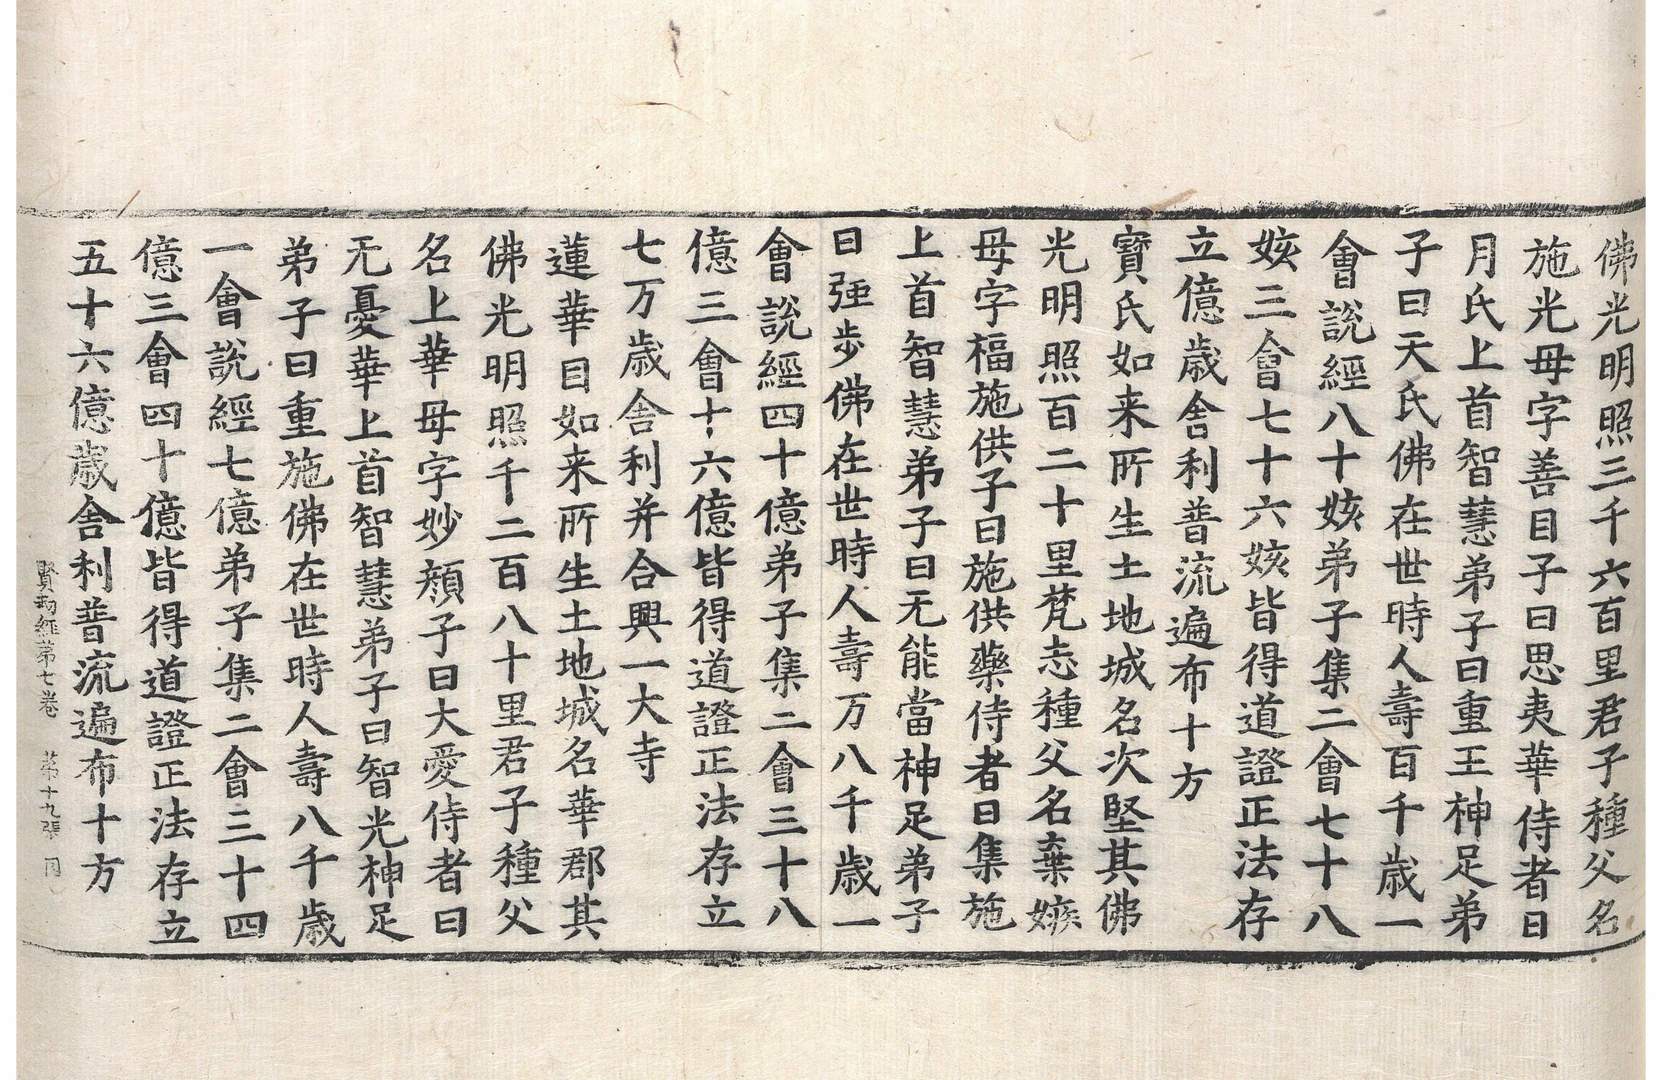 佛光明照三千六百里君子種父名
施光母字善目子曰思夷華侍者曰
月氏上首智慧弟子曰重王神足弟
子曰天氏佛在世時人壽百千歲一
會說經八十姟弟子集二會七十八
姟三會七十六姟皆得道證正法存
立億歲舍利普流遍布十方
寶氏如来所生土地城名次堅其佛
光明照百二十里梵志種父名棄嫉
母字福施供子曰施供藥侍者曰集施
上首智慧弟子曰无能當神足弟子
曰强步佛在世時人壽万八千歲一
會說經四十億弟子集二會三十八
億三會十六億皆得道證正法存立
七万歲舍利并合興一大寺
蓮華目如来所生土地城名華郡其
佛光明照千二百八十里君子種父
名上華母字妙顏子曰大愛侍者曰
无憂華上首智慧弟子曰智光神足
弟子曰重施佛在世時人壽八千歲
一會說經七億弟子集二會三十四
億三會四十億皆得道證正法存立
五十六億歲舍利普流遍布十方
賢劫經第七卷　第十九張